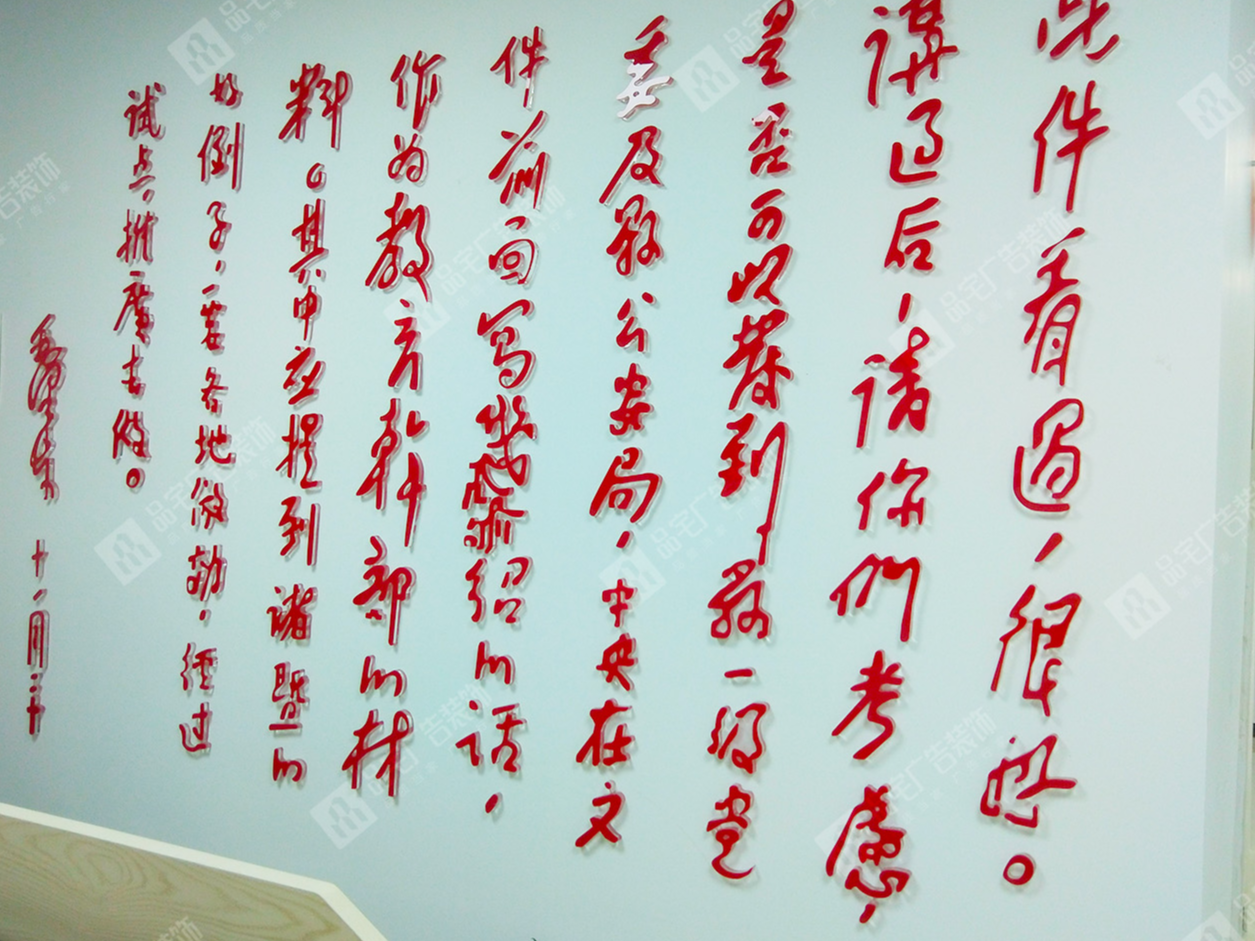 此件看過，很好。
講过后，请你們考慮，
是否可以發到縣一级党
委及縣公安局，中央在文
件前面寫幾句介绍的话，
作为教育幹部的材
料。其中应提到诸暨的
好例子，要各地仿効，經过
试点，推廣去做。
毛澤東 十一月二十
品宅广告装饰